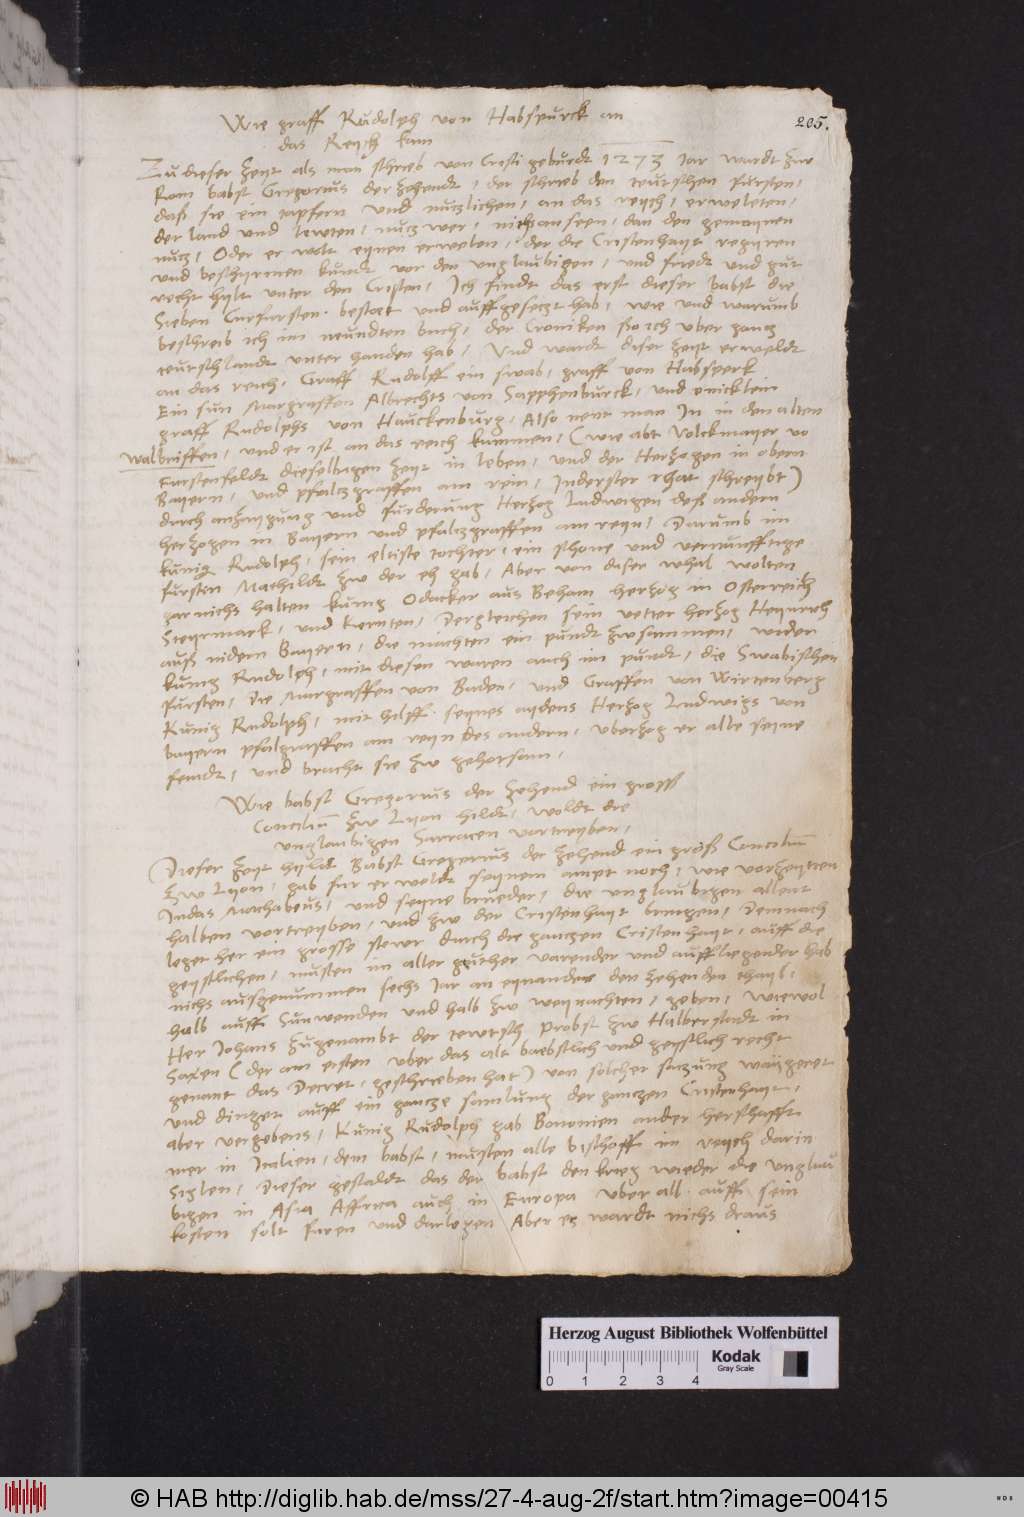 205.
Wie graff Rudolph von Habspurck an
das Reych kam
Zu dieser Zeyt als man schrieb von Cristi geburdt 1273 Jar wardt zw
Rom babst Gregorius der zehendt, der schrieb den teutschen fursten,
daß sie ein tapfern und nuczlichen, an das reych, erweleten,
der land und lewten, nucz wer, nichs an seen, dan den gemaynen
nucz, Oder er wolt eynen erwelen, der die Cristenhayt regyren
und beschyrmen kundt vor den unglaubigen, und friedt und gut
recht hylt unter den Cristen, Ich findt das erst dieser babst die
Sieben Curfursten bestaet und auffgeseczt hab, wie und warumb
beschreib ich im neundten buch, der Croniken so ich uber gancz
teutschlandt unter handen hab, Und wardt diser zeyt erweldt
an das reich, Graff Rudolff ein swab, graff von Habsperk
Ein sun Margraffen Albrechts von Sapphenburck, und enicklein
graff Rudolphs von Hauckenburg, Also nent man In in den alten
walbriffen, und er ist an das reich kummen, (wie abt Volckmayer vo
Furstenfeldt dieselbigen zeyt in leben, und der Herzogen in obern
Bayern, und pfalczgraffen am rein, Inderster rhat schreybt)
durch anzaygung und furderung Herzog Ludwigen deß andern
herzogen in Bayern und pfalczgraffen am reyn, Darumb im
kunig Rudolph, sein elltiste tochter, ein schone und vernunfftige
furstin Mathildt zw der eh gab, Aber von diser whal wolten
gar nichs halten kunig Odacker aus Beham herzog in Osterreich
Steyrmark, und Kernten, Dergleichen sein vetter herzog Heynrich
auß nidern Bayern, die machten ein pundt zwsammen, wider
kunig Rudolph, mit diesen waren auch im pundt, die Swabischen
fursten, Die Margraffen von Baden, und Graffen von Wirtenberg
Kunig Rudolph, mit hilff seynes aydens Herzog Ludwigs von
bayern pfalgraffen am reyn des andern, uberzog er alle seyne
feindt, und bracht sie zw gehorsam,
Wie babst Gregorius der zehend ein groß
Concilium zw Lyon hildt, woldt die
unglaubigen Sarracen vortreyben,
Dieser zeyt hyldt Babst Gregorius der zehend ein groß Concilium
zw Lyon, gab fur er woldt seynem ampt noch, wie vorzeytten
Judas Machabeus, und seyne brueder, die unglaubigen allent
halben vortreyben, und zw der Cristenhayt bringen, Demnach
leget her ein grosse stewr durch die ganczen Cristenhayt, auff die
geystlichen, musten im aller guther varender und auffliegender hab
nichs ausgenummen sechs Jar an eynander den zehenden thayl,
halb auff Sunwenden und halb zw weynachten, geben, wiewol
Her Johans zugenambt der tewtsch Probst zw Halberstadt in
Saxen (der am ersten uber das alt baebstlich und geystlich recht
genant das Decret, geschrieben hat) von solcher saczung waygeret
und dinget auff ein gancze samlung der ganczen Cristenhayt,
aber vergebens, Kunig Rudolph gab Bononien ander herschafft
mer in Italien, dem babst, musten alle bischoff im reych darin
Siglen, Dieser gestaldt das der babst den krieg wieder die unglau
bigen in Asia Affrica auch in Europa uber all auff sein
kosten solt furen und darlegen Aber es wardt nichs draus
Herzog August Bibliothek Wolfenbüttel
Kodak
Gray Scale
0 1 2 3 4
© HAB http://diglib.hab.de/mss/27-4-aug-2f/start.htm?image=00415